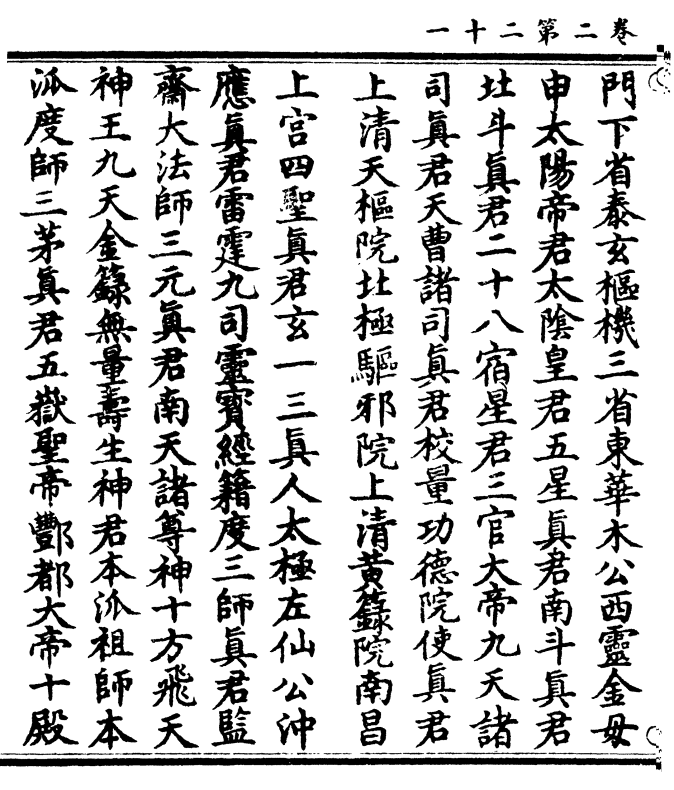 卷二第二十一
門下省泰玄樞機三省東華木公西靈金毋
申太陽帝君太陰皇君五星眞君南斗眞君
北斗眞君二十八宿星君三官大帝九天諸
司眞君天曹諸司眞君校量功德院使眞君
上清天樞院北極驅邪院上清黃籙院南昌
上宮四聖眞君玄一三眞人太極左仙公沖
應眞君雷霆九司靈寳經籍度三師眞君監
齋大法師三元眞君南天諸尊神十方飛天
神王九天金籙無量壽生神君本派祖師本
派度師三茅眞君五嶽聖帝酆都大帝十殿